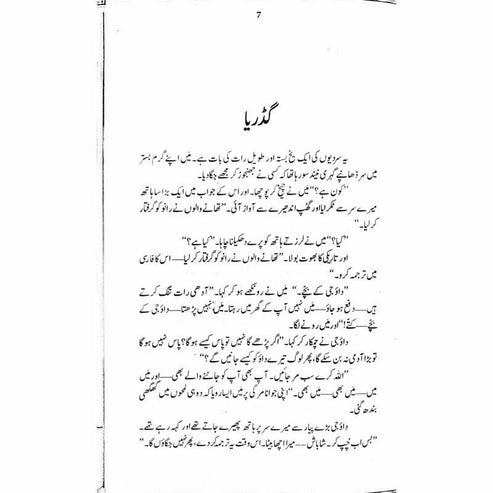 7
گڈریا
یہ سردیوں کی ایک یخ بستہ اور طویل رات کی بات ہے۔ میں اپنے گرم بستر
میں سر ڈھانپے گہری نیند سو رہا تھا کہ کسی نے جھنجوڑ کر مجھے جگا دیا۔
"کون ہے؟" میں نے چیخ کر پوچھا۔ اور اس کے جواب میں ایک بڑا سا ہاتھ
میرے سر سے ٹکرایا اور گھپ اندھیرے سے آواز آئی۔ "تھانے والوں نے رانو کو گرفتار
کر لیا۔"
"کیا؟" میں نے لرزتے ہاتھ کو پرے دھکیلنا چاہا۔ "کیا ہے؟"
اور تاریکی کا بھوت بولا۔ "تھانے والوں نے رانو کو گرفتار کر لیا — اس کا فارسی
میں ترجمہ کرو۔"
"داؤجی کے بچے۔" میں نے روتکھے ہو کر کہا۔ "آدھی رات تک تنگ کرتے
ہیں — دفع ہو جاؤ — میں نہیں آپ کے گھر میں رہتا۔ میں نہیں پڑھتا — داؤجی کے
بچے — کتے!" اور میں رونے لگا۔
داؤجی نے چمکار کر کہا۔ "اگر پڑھے گا نہیں تو پاس کیسے ہوگا؟ پاس نہیں ہوگا
تو بڑا آدمی نہ بن سکے گا، پھر لوگ تیرے داؤ کو کیسے جانیں گے؟"
"اللہ کرے سب مر جائیں۔ آپ بھی آپ کو جاننے والے بھی — اور میں
میں — میں بھی — میں بھی۔" اپنی جوانا مرگی پر میں ایسا رویا کہ دو ہی لمحوں میں گھگھی
بندھ گئی۔
داؤجی بڑے پیار سے میرے سر پر ہاتھ پھیرے جاتے تھے اور کہہ رہے تھے۔
"بس اب چپ کر۔ شاباش — میرا اچھا بیٹا۔ اس وقت یہ ترجمہ کر دے، پھر نہیں جگاؤں گا۔"